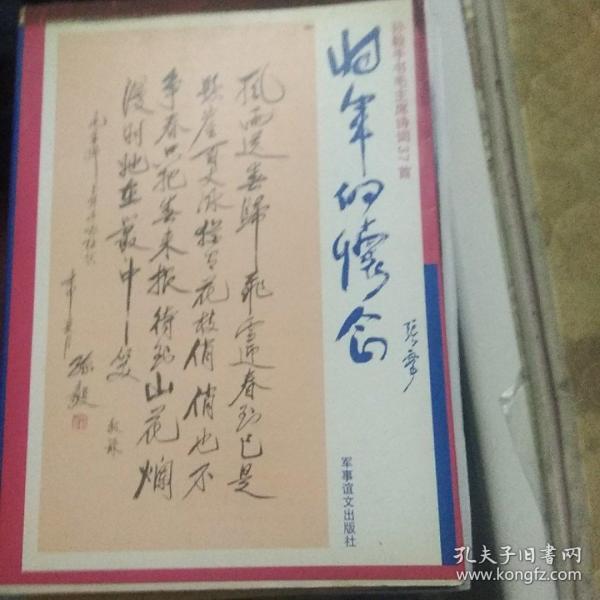 孙毅手书毛主席诗词37首
将军的情怀
张震
军事谊文出版社
风雨送春归飞雪迎春到已是
悬崖百丈冰犹有花枝俏俏也不
争春只把春来报待到山花烂
漫时她在丛中笑
孙毅
敬录
孔夫子旧书网
www.kongfz.com